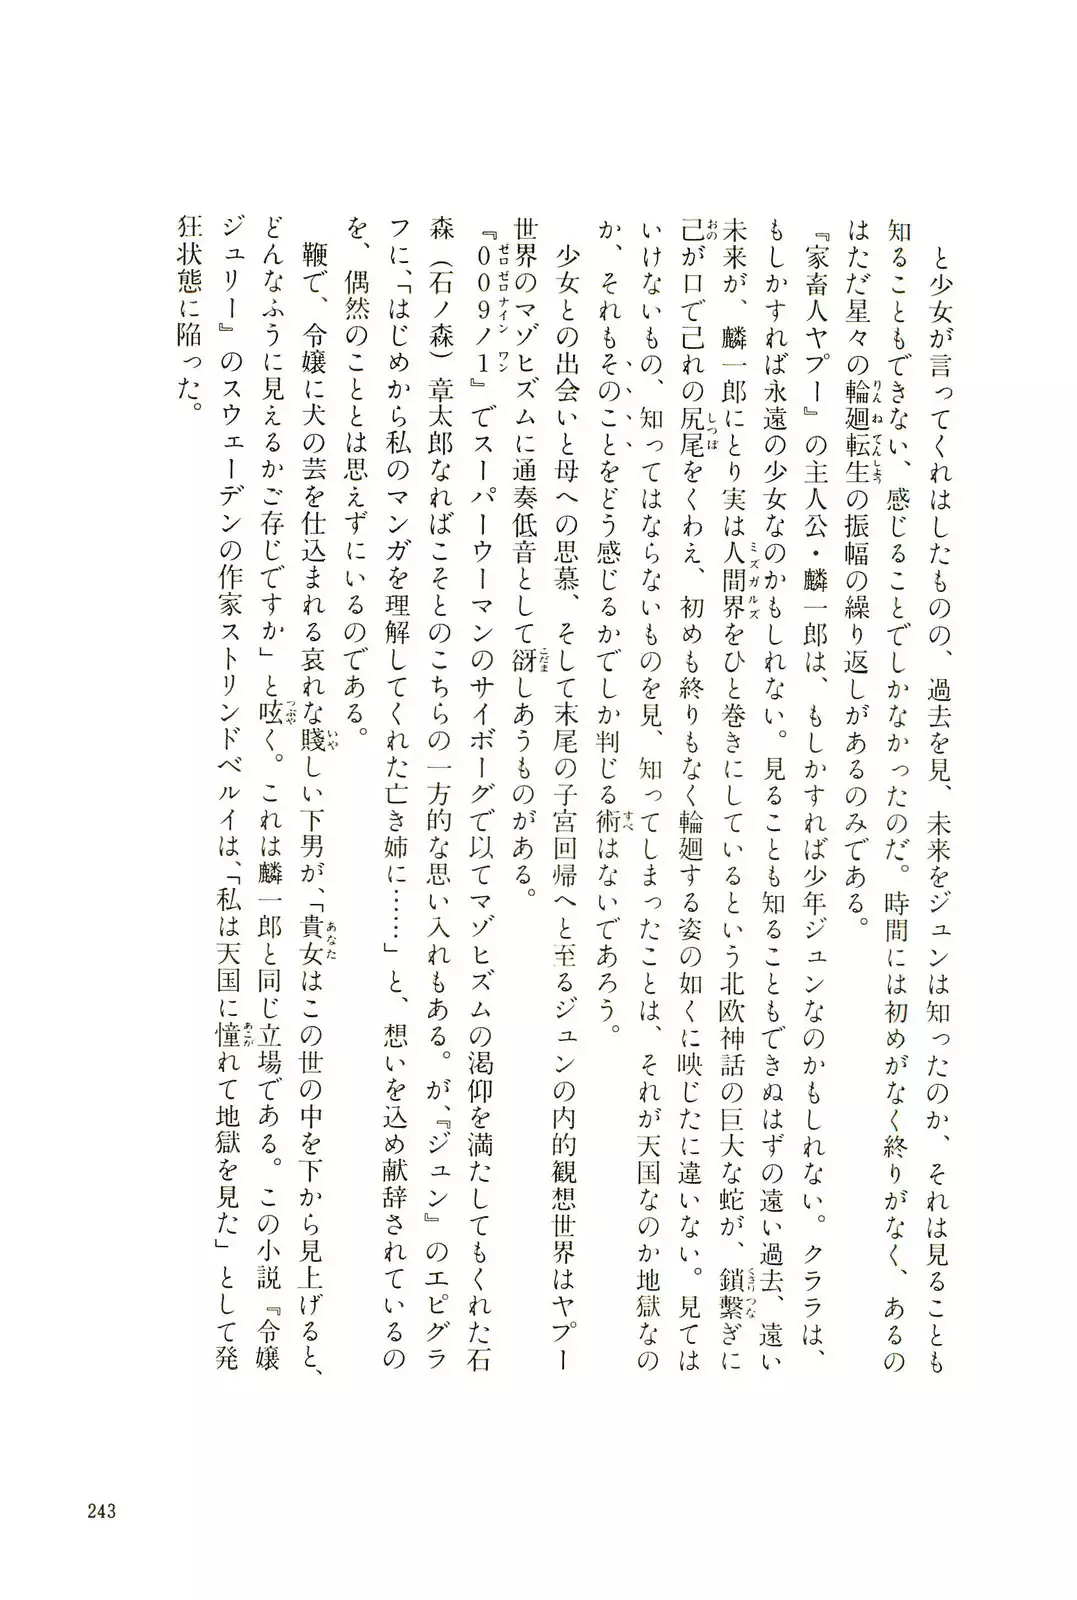 と少女が言ってくれはしたものの、過去を見、未来をジュンは知ったのか、それは見ることも
知ることもできない、感じることでしかなかったのだ。時間には初めがなく終りがなく、あるの
はただ星々の輪廻転生の振幅の繰り返しがあるのみである。
『家畜人ヤプー』の主人公・麟一郎は、もしかすれば少年ジュンなのかもしれない。クララは、
もしかすれば永遠の少女なのかもしれない。見ることも知ることもできぬはずの遠い過去、遠い
未来が、麟一郎にとり実は人間界をひと巻きにしているという北欧神話の巨大な蛇が、鎖繋ぎに
己が口で己れの尻尾をくわえ、初めも終りもなく輪廻する姿の如くに映じたに違いない。見ては
いけないもの、知ってはならないものを見、知ってしまったことは、それが天国なのか地獄なの
か、それもそのことをどう感じるかでしか判じる術はないであろう。
少女との出会いと母への思慕、そして末尾の子宮回帰へと至るジュンの内的観想世界はヤプー
世界のマゾヒズムに通奏低音として谺しあうものがある。
『009ノ1』でスーパーウーマンのサイボーグで以てマゾヒズムの渇仰を満たしてもくれた石
森（石ノ森）章太郎なればこそとのこちらの一方的な思い入れもある。が、『ジュン』のエピグラ
フに、「はじめから私のマンガを理解してくれた亡き姉に……」と、想いを込め献辞されているの
を、偶然のこととは思えずにいるのである。
鞭で、令嬢に犬の芸を仕込まれる哀れな賤しい下男が、「貴女はこの世の中を下から見上げると、
どんなふうに見えるかご存じですか」と呟く。これは麟一郎と同じ立場である。この小説『令嬢
ジュリー』のスウェーデンの作家ストリンドベルイは、「私は天国に憧れて地獄を見た」として発
狂状態に陥った。
243